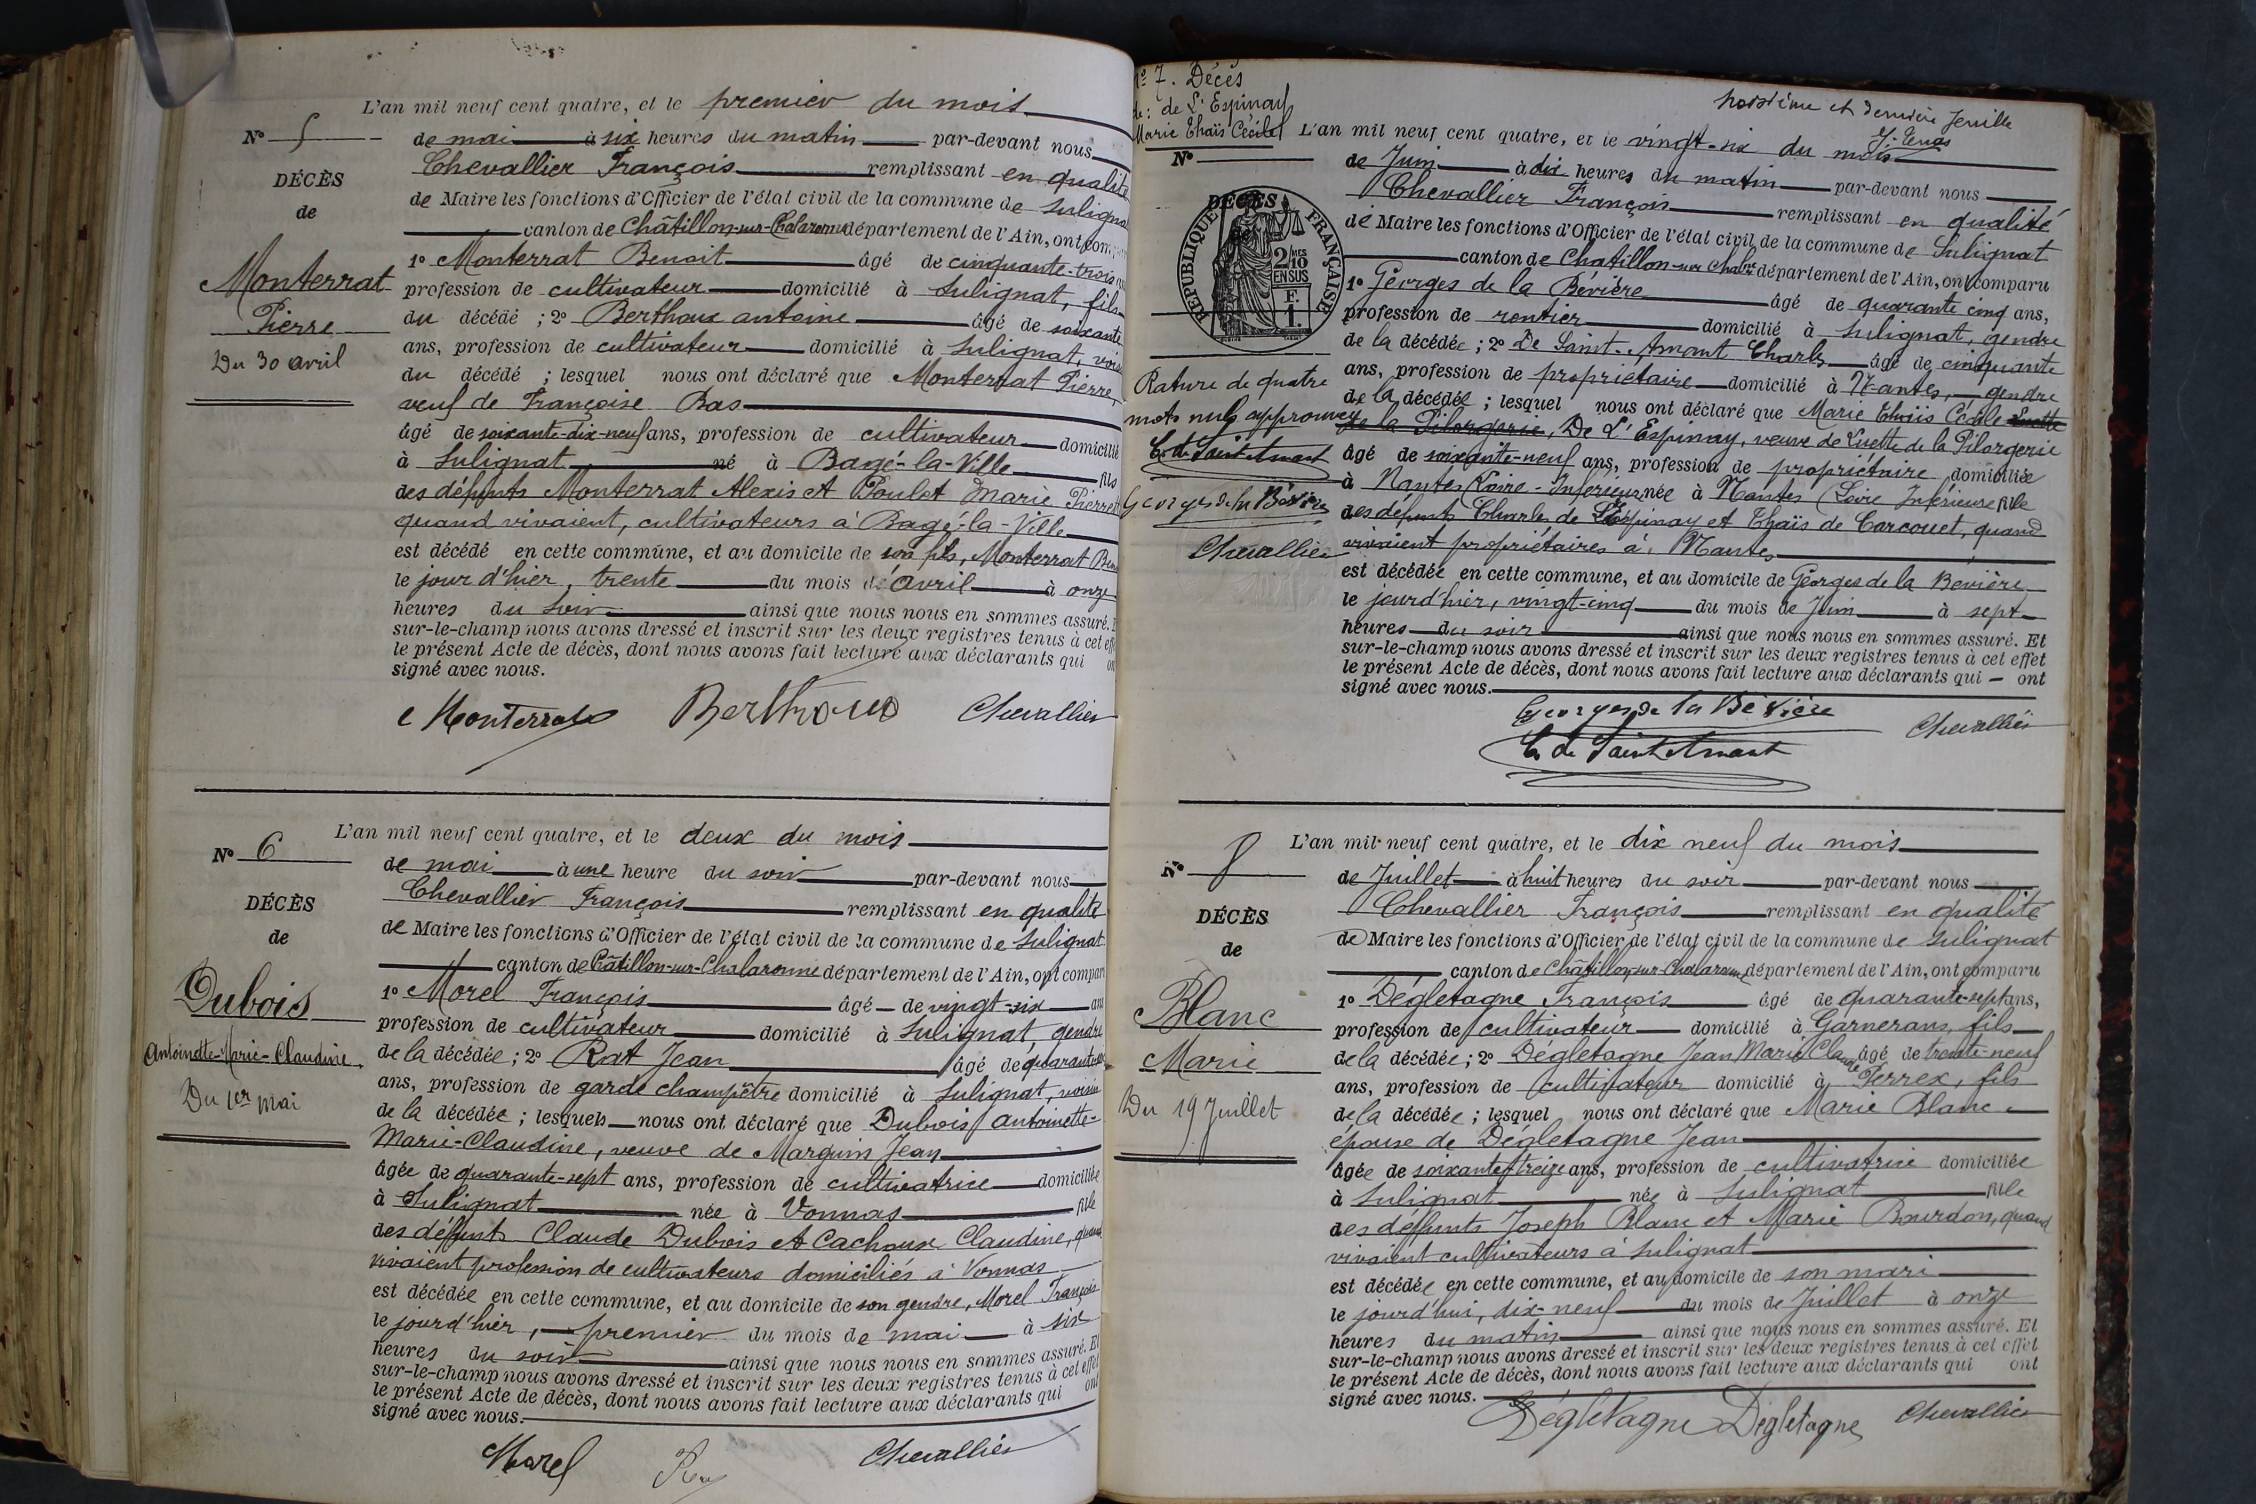 L'an mil neuf cent quatre, et le premier du mois
N° 5
de mai à six heures du matin par-devant nous
DÉCÈS
Chevallier François remplissant en qualité
de
de Maire les fonctions d'Officier de l'état civil de la commune de Sulignat
canton de Châtillon-sur-Chalaronne département de l'Ain, ont
Monterrat
1° Monterrat Benoit âgé de cinquante-trois
profession de cultivateur domicilié à Sulignat, fils
Pierre
du décédé ; 2° Berthoux antoine âgé de soixante
Du 30 avril
ans, profession de cultivateur domicilié à Sulignat,
du décédé ; lesquel nous ont déclaré que Monterrat Pierre,
veuf de Françoise Bas
âgé de soixante-dix-neuf ans, profession de cultivateur domicilié
à Sulignat né à Bagé-la-Ville fils
des défunts Monterrat Alexis et Poulet Marie Pierrette
quand vivaient, cultivateurs à Bagé-la-Ville
est décédé en cette commune, et au domicile de son fils, Monterrat
le jour d'hier, trente du mois de avril à onze
heures du soir ainsi que nous nous en sommes assuré.
sur-le-champ nous avons dressé et inscrit sur les deux registres tenus à cet
le présent Acte de décès, dont nous avons fait lecture aux déclarants qui
signé avec nous.
Monterrat Berthoux Chevallier
L'an mil neuf cent quatre, et le deux du mois
N° 6
de mai à une heure du soir par-devant nous
DÉCÈS
Chevallier François remplissant en qualité
de
de Maire les fonctions d'Officier de l'état civil de la commune de Sulignat
canton de Câtillon-sur-Chalaronne département de l'Ain, ont
Dubois
1° Morel François âgé de vingt-six ans
profession de cultivateur domicilié à Sulignat, gendre
Antoinette-Marie-Claudine
de la décédée ; 2° Rat Jean âgé de
Du 1er mai
ans, profession de garde champêtre domicilié à Sulignat, voisin
de la décédée ; lesquels nous ont déclaré que Dubois antoinette-
Marie-Claudine, veuve de Marguin Jean
âgée de quarante-sept ans, profession de cultivatrice domiciliée
à Sulignat née à Vonnas fille
des défunts Claude Dubois et Cachoux Claudine, quand
vivaient profession de cultivateurs domiciliés à Vonnas
est décédée en cette commune, et au domicile de son gendre, Morel François
le jour d'hier, premier du mois de mai à six
heures du soir ainsi que nous nous en sommes assuré. Et
sur-le-champ nous avons dressé et inscrit sur les deux registres tenus à cet effet
le présent Acte de décès, dont nous avons fait lecture aux déclarants qui ont
signé avec nous.
Morel Chevallier
N° 7. Décès
de : de L'Espinay
Marie Thaïs Cécile
troisième et dernière feuille
L'an mil neuf cent quatre, et le vingt-six du mois
N°
de Juin à dix heures du matin par-devant nous
DÉCÈS
Chevallier François remplissant en qualité
de Maire les fonctions d'Officier de l'état civil de la commune de Sulignat
RÉPUBLIQUE FRANÇAISE
2/10 MES
EN SUS
F.
1.
canton de Chatillon-sur-Chalne département de l'Ain, ont comparu
1° Géorges de la Bévière âgé de quarante cinq ans,
profession de rentier domicilié à Sulignat, gendre
de la décédée ; 2° De Saint-Amant Charles âgé de cinquante
ans, profession de propriétaire domicilié à Nantes, gendre
de la décédée ; lesquel nous ont déclaré que Marie Thaïs Cécile Luette
de la Pilorgerie, De L'Espinay, veuve de Luette de la Pilorgerie
Rature de quatre
mots nuls approuvée
Ch. de Saint Amant
Georges de la Bévière
Chevallier
âgé de soixante-neuf ans, profession de propriétaire domiciliée
à Nantes (Loire-Inférieure née à Nantes (Loire Inférieure fille
des défunts Charles de L'Espinay et Thaïs de Carcouet, quand
vivaient propriétaires à Nantes
est décédée en cette commune, et au domicile de Géorges de la Bévière
le jour d'hier, vingt-cinq du mois de Juin à sept
heures du soir ainsi que nous nous en sommes assuré. Et
sur-le-champ nous avons dressé et inscrit sur les deux registres tenus à cet effet
le présent Acte de décès, dont nous avons fait lecture aux déclarants qui ont
signé avec nous.
Georges de la Bévière
Ch de Saint Amant
Chevallier
L'an mil neuf cent quatre, et le dix neuf du mois
N° 8
de Juillet à huit heures du soir par-devant nous
DÉCÈS
Chevallier François remplissant en qualité
de
de Maire les fonctions d'Officier de l'état civil de la commune de Sulignat
canton de Châtillon-sur-Chalaronne département de l'Ain, ont comparu
Blanc
1° Dégletagne François âgé de quarante-sept ans,
profession de cultivateur domicilié à Garnerans, fils
Marie
de la décédée ; 2° Dégletagne Jean Marie Claude âgé de trente-neuf
Du 19 Juillet
ans, profession de cultivateur domicilié à Perrex, fils
de la décédée ; lesquel nous ont déclaré que Marie Blanc
épouse de Dégletagne Jean
âgée de soixante-treize ans, profession de cultivatrice domiciliée
à Sulignat née à Sulignat fille
des défunts Joseph Blanc et Marie Bourdon, quand
vivaient cultivateurs à Sulignat
est décédée en cette commune, et au domicile de son mari
le jour d'hui, dix-neuf du mois de Juillet à onze
heures du matin ainsi que nous nous en sommes assuré. Et
sur-le-champ nous avons dressé et inscrit sur les deux registres tenus à cet effet
le présent Acte de décès, dont nous avons fait lecture aux déclarants qui ont
signé avec nous.
Dégletagne Dégletagne Chevallier